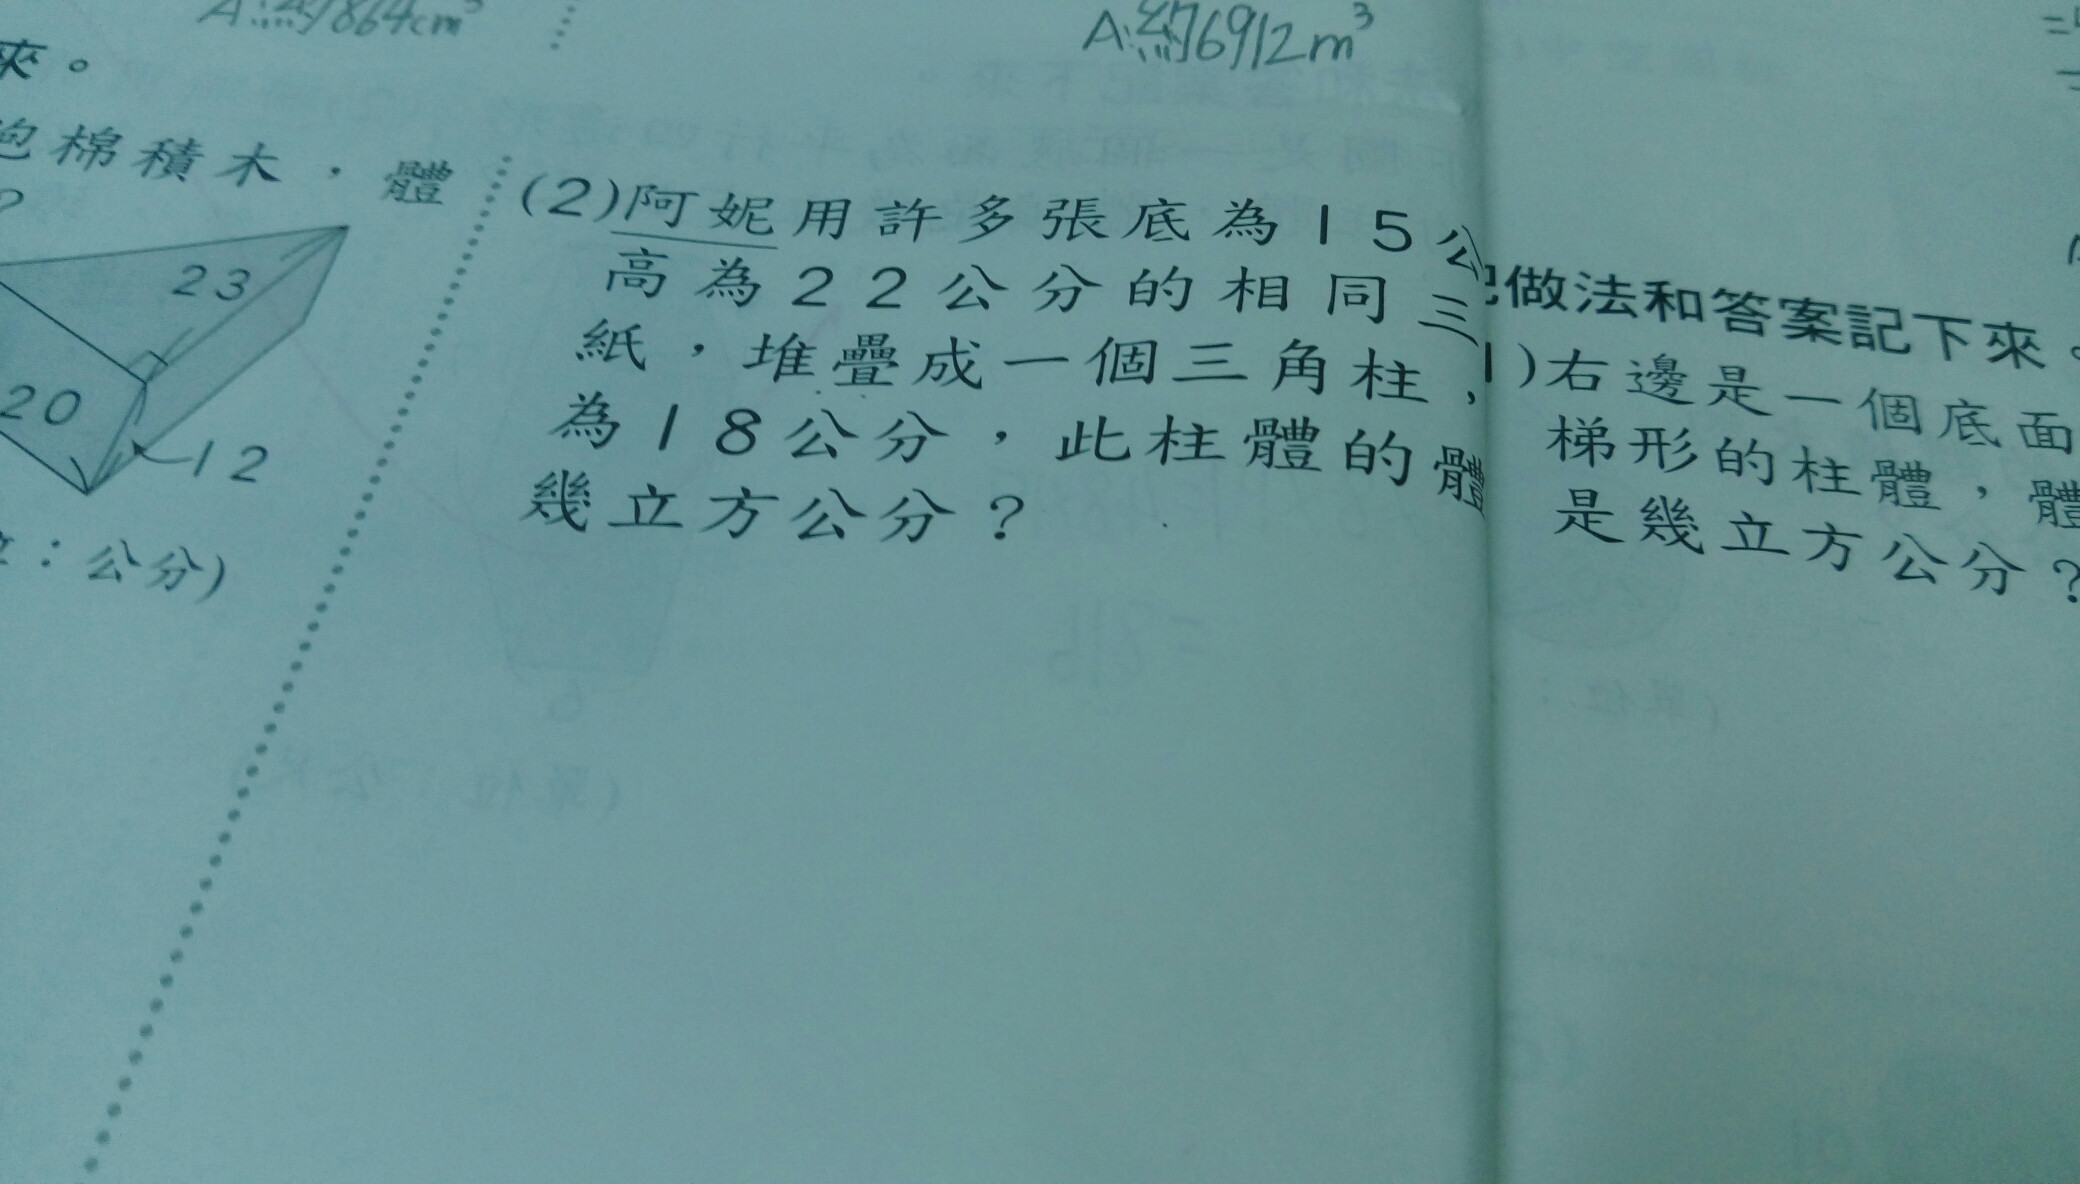 A:約7864cm³
A:約6912m³
來。
泡棉積木，體
23
20
12
：公分)
(2)阿妮用許多張底為15公
高為22公分的相同三
紙，堆疊成一個三角柱，
為18公分，此柱體的體
幾立方公分？
做法和答案記下來。
1)右邊是一個底面
梯形的柱體，體
是幾立方公分？